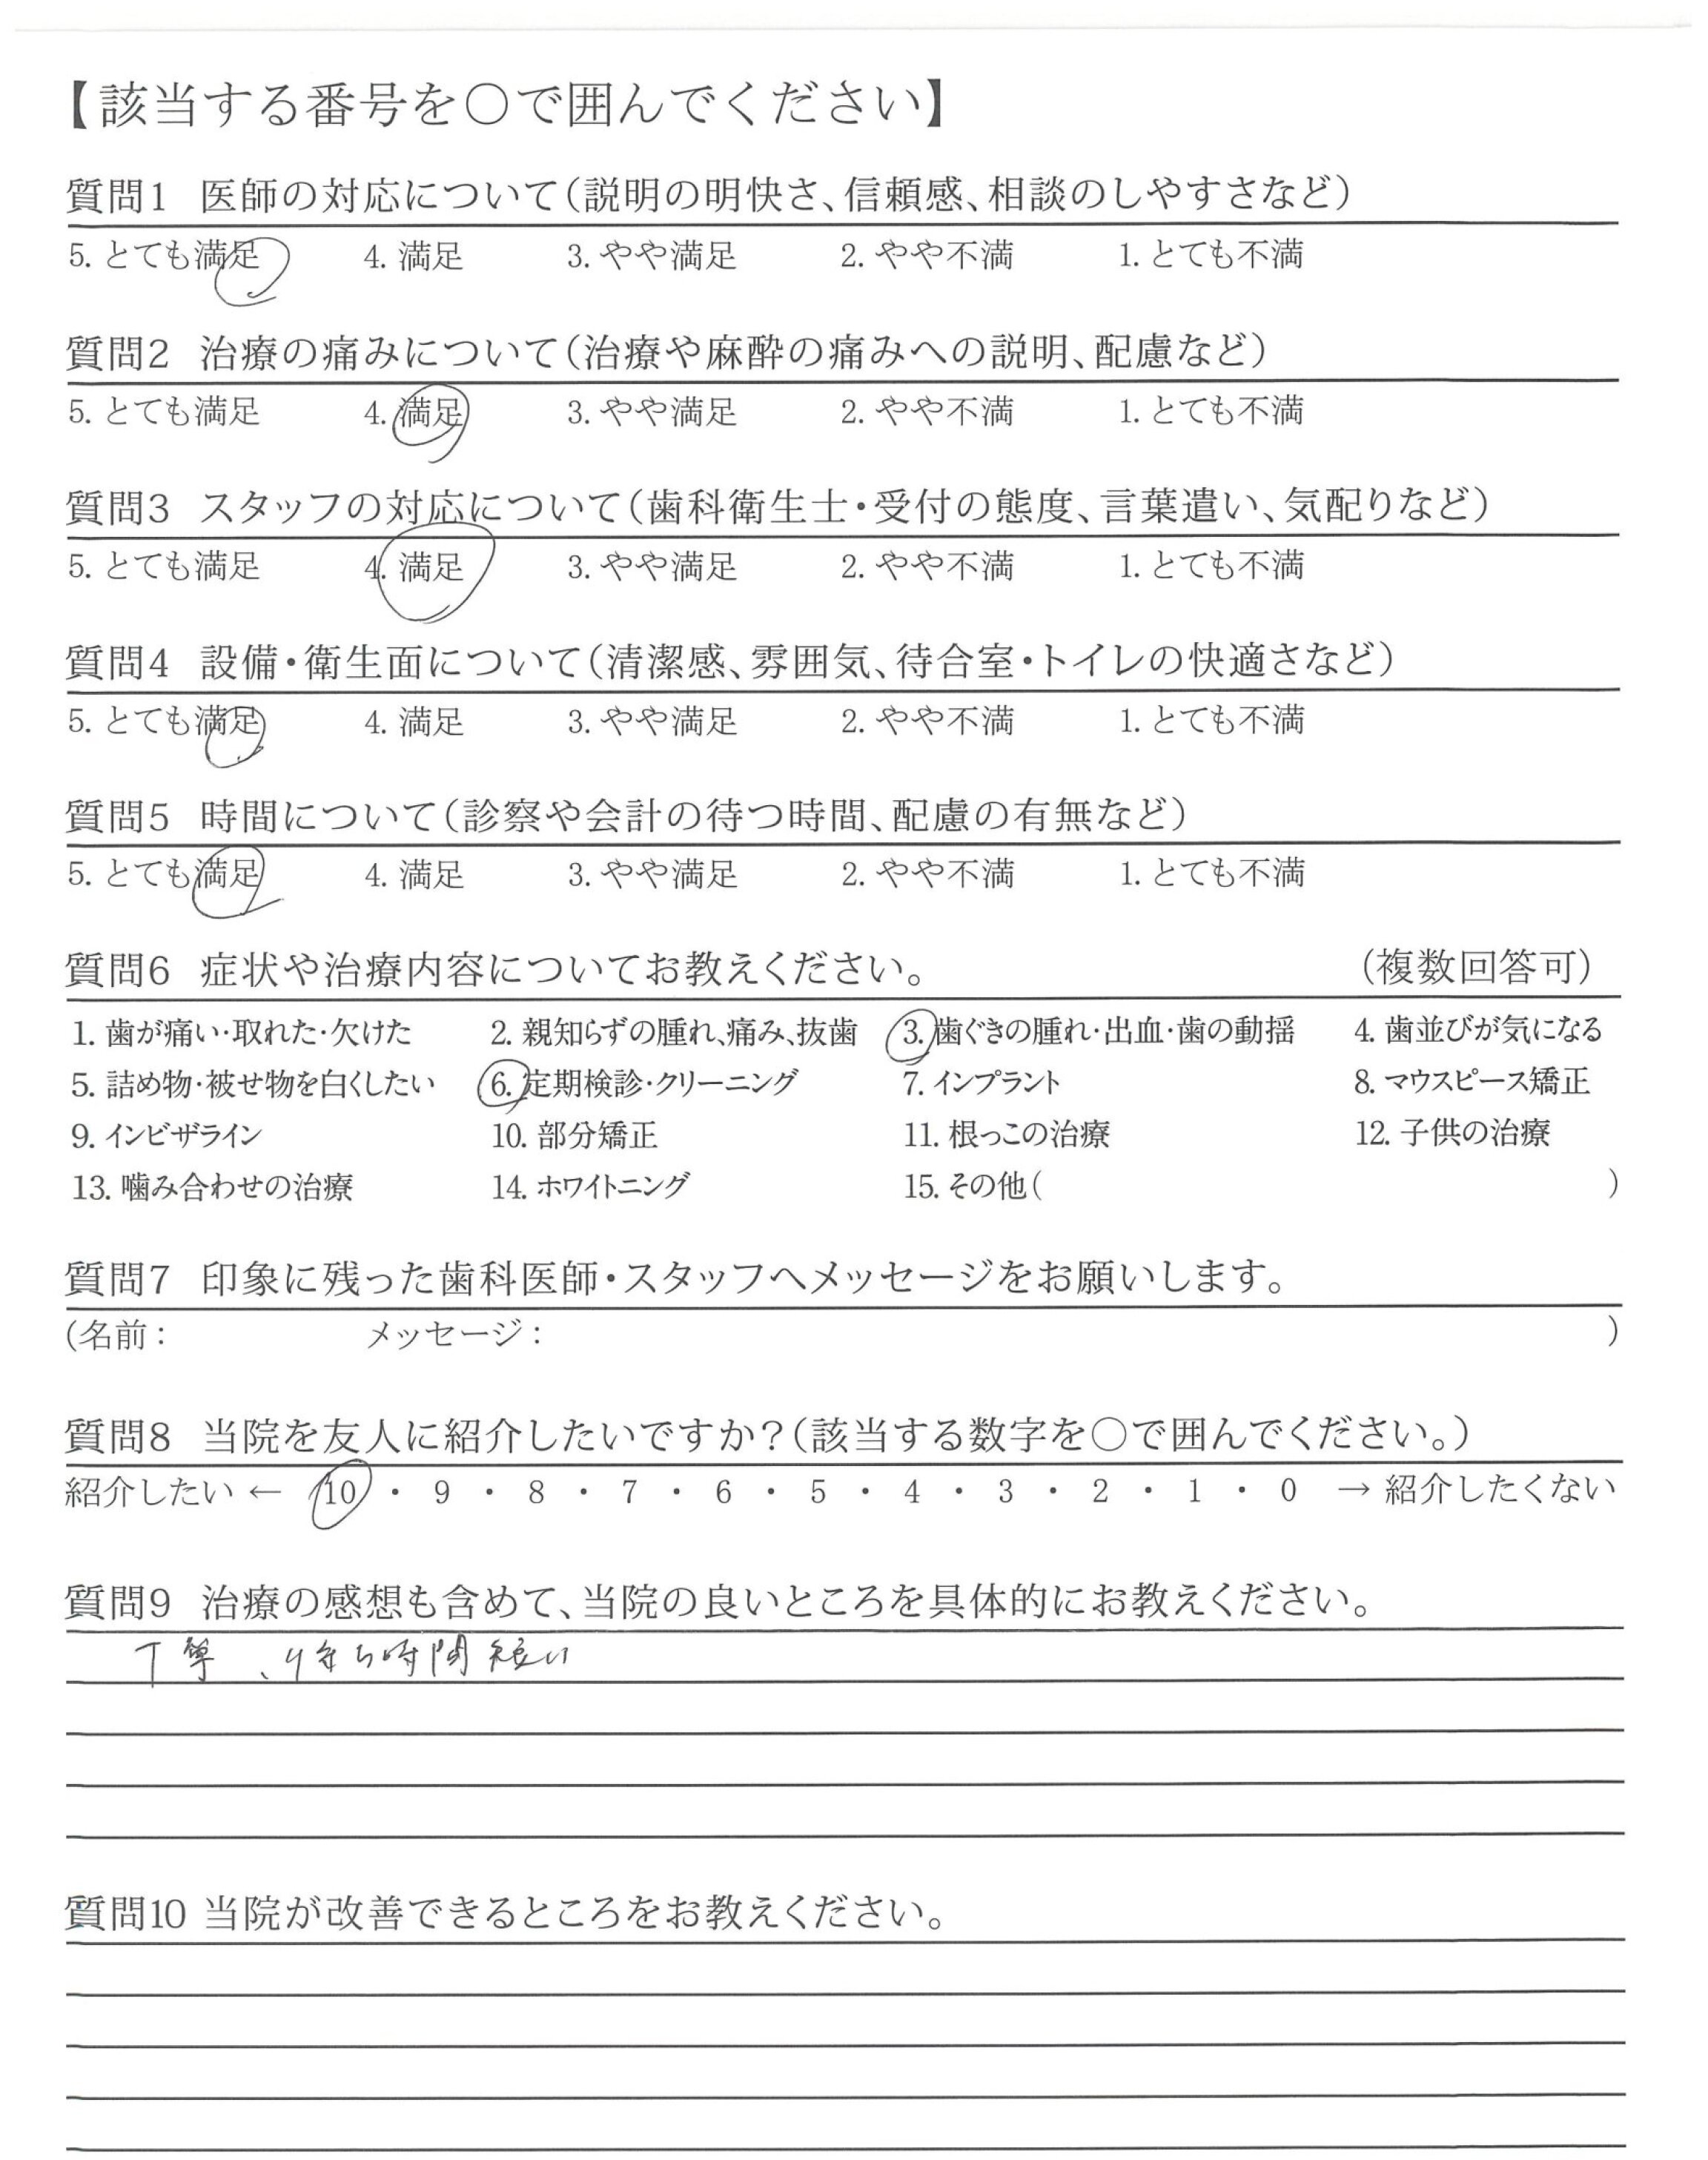 【該当する番号を〇で囲んでください】
質問1 医師の対応について(説明の明快さ、信頼感、相談のしやすさなど)
5. とても満足 4. 満足 3. やや満足 2. やや不満 1. とても不満
質問2 治療の痛みについて(治療や麻酔の痛みへの説明、配慮など)
5. とても満足 4. 満足 3. やや満足 2. やや不満 1. とても不満
質問3 スタッフの対応について(歯科衛生士・受付の態度、言葉遣い、気配りなど)
5. とても満足 4. 満足 3. やや満足 2. やや不満 1. とても不満
質問4 設備・衛生面について(清潔感、雰囲気、待合室・トイレの快適さなど)
5. とても満足 4. 満足 3. やや満足 2. やや不満 1. とても不満
質問5 時間について(診察や会計の待つ時間、配慮の有無など)
5. とても満足 4. 満足 3. やや満足 2. やや不満 1. とても不満
質問6 症状や治療内容についてお教えください。 (複数回答可)
1. 歯が痛い・取れた・欠けた 2. 親知らずの腫れ、痛み、抜歯 3. 歯ぐきの腫れ・出血・歯の動揺 4. 歯並びが気になる
5. 詰め物・被せ物を白くしたい 6. 定期検診・クリーニング 7. インプラント 8. マウスピース矯正
9. インビザライン 10. 部分矯正 11. 根っこの治療 12. 子供の治療
13. 噛み合わせの治療 14. ホワイトニング 15. その他( )
質問7 印象に残った歯科医師・スタッフへメッセージをお願いします。
(名前: メッセージ: )
質問8 当院を友人に紹介したいですか?(該当する数字を〇で囲んでください。)
紹介したい ← 10 ・ 9 ・ 8 ・ 7 ・ 6 ・ 5 ・ 4 ・ 3 ・ 2 ・ 1 ・ 0 → 紹介したくない
質問9 治療の感想も含めて、当院の良いところを具体的にお教えください。
、待ち時間短い
質問10 当院が改善できるところをお教えください。